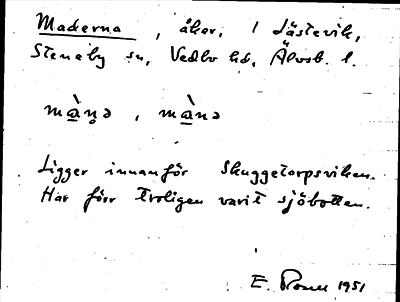 Maderna, åker, i Jästevik,
Steneby sn, Vedbo hd, Älvsb. l.
mà̠n̥ə, mà̠nə
Ligger innanför Skuggetorpsviken.
Har förr troligen varit sjöbotten.
E. 1951